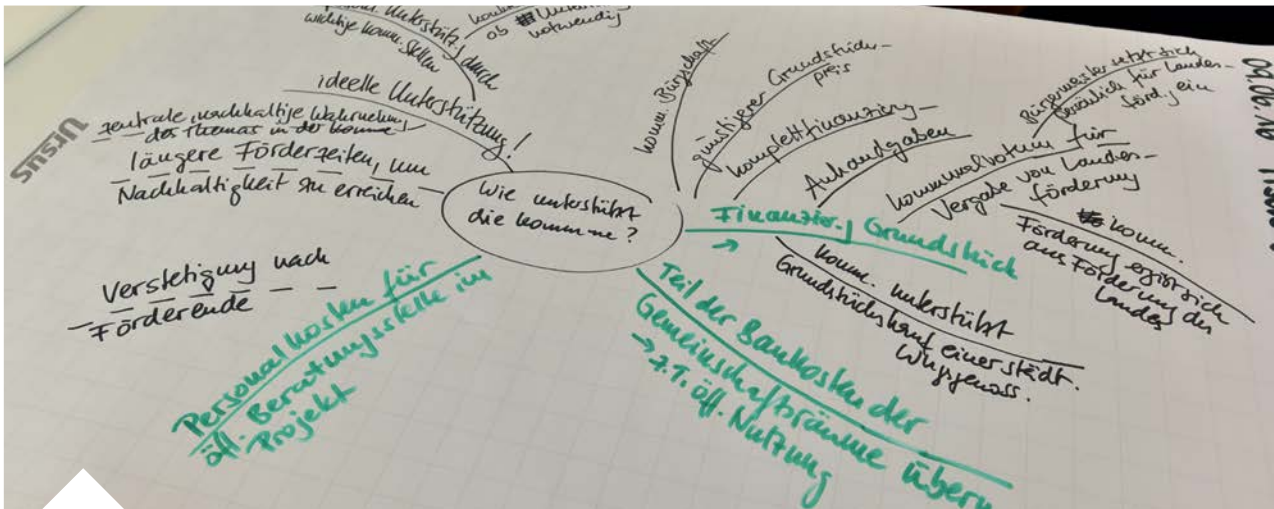 Wie unterstützt
die Komme?
Unterstütz. durch
wichtige komm. Stellen
ob
notwendig
ideelle Unterstützung!
zentrale, nachhaltige Wahrnehmung
des Themas in der Komme
längere Förderzeiten, um
Nachhaltigkeit zu erreichen
Verstetigung nach
Förderende
Personalkosten für
öff. Beratungsstelle im
Projekt
komm. Bürgschaft
günstigerer Grundstücks-
preis
Komplettfinanzierung
Anhandgaben
Kommunalvotum für
Vergabe von Landes-
förderung
Bürgermeister setzt sich
persönlich für Landes-
förd. ein
komm.
Förderung ergibt sich
aus Förderung des
Landes
Finanzier.g Grundstück
→
komm. unterstützt
Grundstückskauf einer städt.
Whgsgenoss.
Teil der Baukosten der
Gemeinschaftsräume übern
→ z.T. öff. Nutzung
ursus
09.06.16